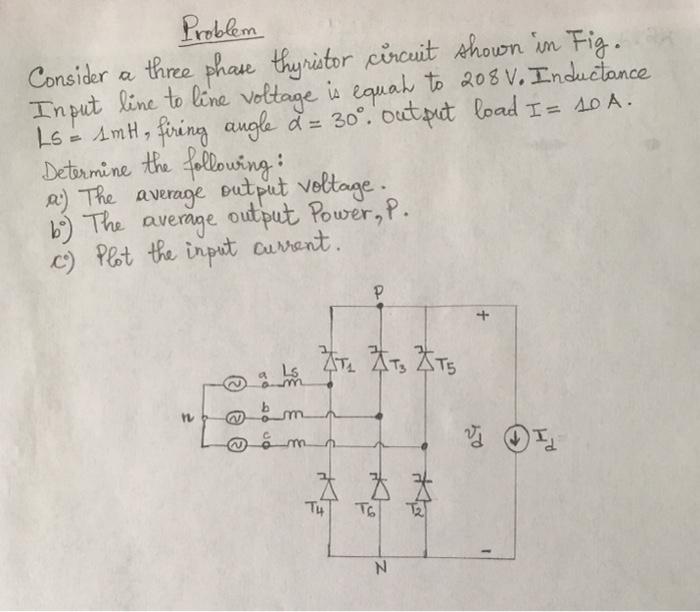 Problem
Consider a three phase thyristor circuit shown in Fig.
Input line to line voltage is equal to 208 V. Inductance
Ls = 1mH, firing angle α = 30°. output load I = 10 A.
Determine the following:
a) The average output voltage.
b) The average output Power, P.
c) Plot the input current.
P
+
T1 T3 T5
a Ls
n b
c
vd Id
T4 T6 T2
-
N